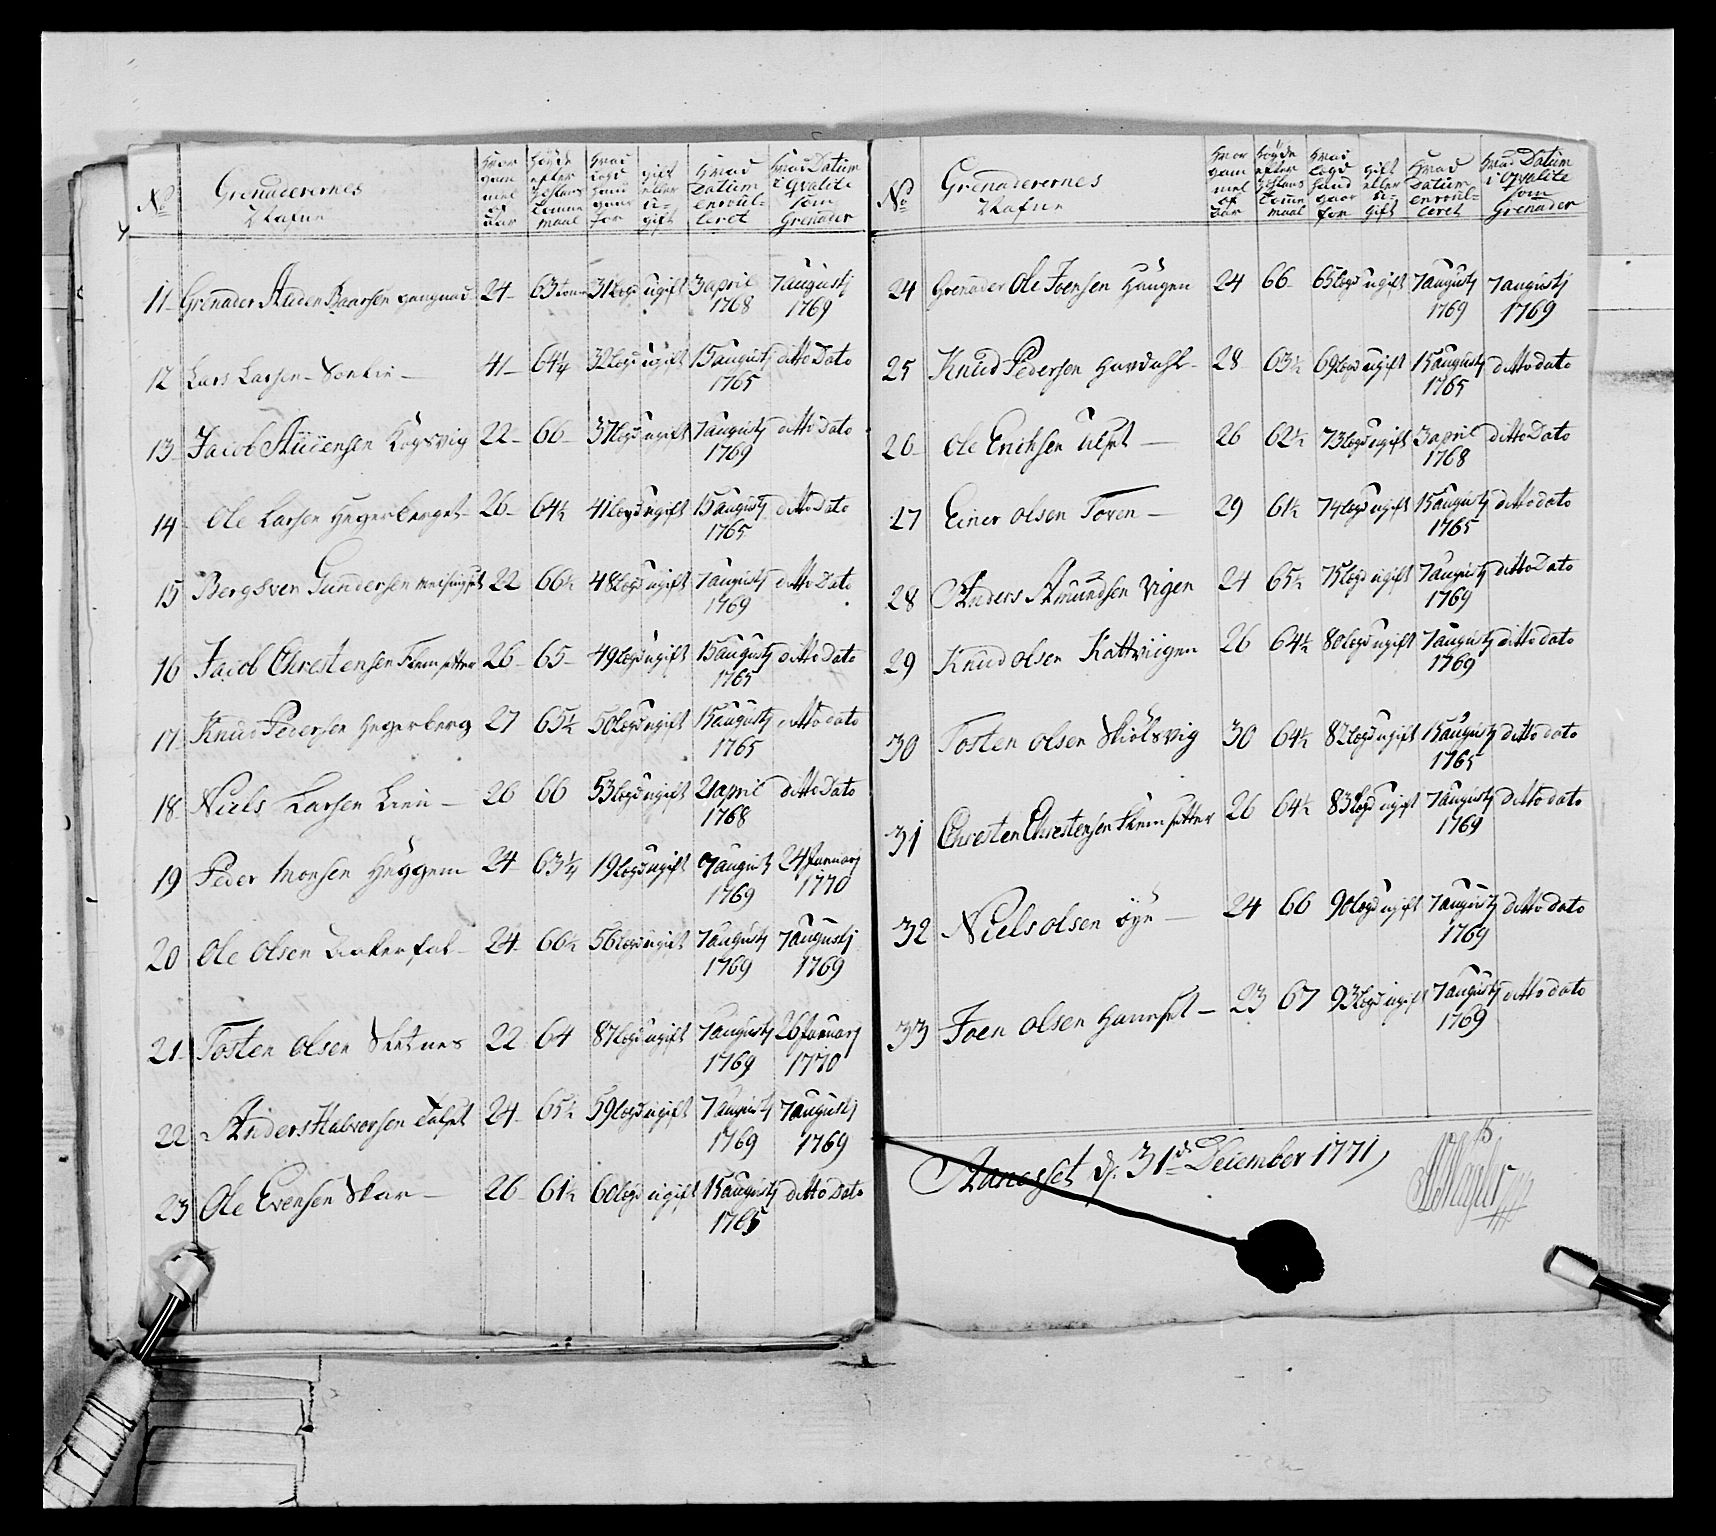 No
Grenaderernes
Nafne
Hvor gammel af aar
Høyde efter
maal
Hvad Lægd hand gaar for
gift eller ugift
Hvad Datum enroulleret
Hvad Datum i Qvalite som Grenader
11 Grenader Auden Baarsen 24 63 31 lægd ugift 3 april 1768 7 augustj 1769
12 Lars Larsen 41 64¼ 32 lægd ugift 15 augustj 1765 ditto Dato
13 Jacob Audensen Kogsvig 22 66 37 lægd ugift 7 augustj 1769 ditto Dato
14 Ole Larsen Hegerberget 26 64½ 41 lægd ugift 15 augustj 1765 ditto Dato
15 Bergsven Gundersen 22 66½ 48 lægd ugift 7 augustj 1769 ditto Dato
16 Jacob Chrestensen Flemsetter 26 65 49 lægd ugift 15 augustj 1765 ditto Dato
17 Knud Pedersen Hegerberg 27 65½ 50 lægd ugift 15 augustj 1765 ditto dato
18 Niels Larsen Lien 26 66 53 lægd ugift 21 april 1768 ditto Dato
19 Peder Monsen Heggem 24 63¼ 19 lægd ugift 7 augustj 1769 24 Januarj 1770
20 Ole Olsen 24 66½ 56 lægd ugift 7 augustj 1769 7 augustj 1769
21 Tosten Olsen Sketnes 22 64 87 lægd ugift 7 augustj 1769 26 Januarj 1770
22 Anders Halvorsen Talset 24 65½ 59 lægd ugift 7 augustj 1769 7 augustj 1769
23 Ole Evensen Skar 26 61½ 60 lægd ugift 15 augustj 1765 ditto Dato
No
Grenaderernes
Nafne
Hvor gammel af aar
Høyde efter
maal
Hvad Lægd hand gaar for
gift eller ugift
Hvad Datum enroulleret
Hvad Datum i Qvalite som Grenader
24 Grenader Ole Joensen Haugen 24 66 65 lægd ugift 7 augustj 1769 7 augustj 1769
25 Knud Pedersen Hardahl 28 63½ 69 lægd ugift 15 augustj 1765 ditto dato
26 Ole Erichsen Ulset 26 62½ 73 lægd ugift 3 april 1768 ditto Dato
27 Einer Olsen Toven 29 61½ 74 lægd ugift 15 augustj 1765 ditto dato
28 Anders Amundsen Vigen 24 65½ 75 lægd ugift 7 augustj 1769 ditto Dato
29 Knud Olsen Kattviigen 26 64½ 80 lægd ugift 7 augustj 1769 ditto dato
30 Tosten Olsen Skiølsvig 30 64½ 82 lægd ugift 15 augustj 1765 ditto dato
31 Chresten Chrestensen Flemsetter 26 64½ 83 lægd ugift 7 augustj 1769 ditto dato
32 Niels Olsen Øye 24 66 90 lægd ugift 7 augustj 1769 ditto dato
33 Joen Olsen Hanset 23 67 93 lægd ugift 7 augustj 1769 ditto dato
Aanesset d. 31d December 1771